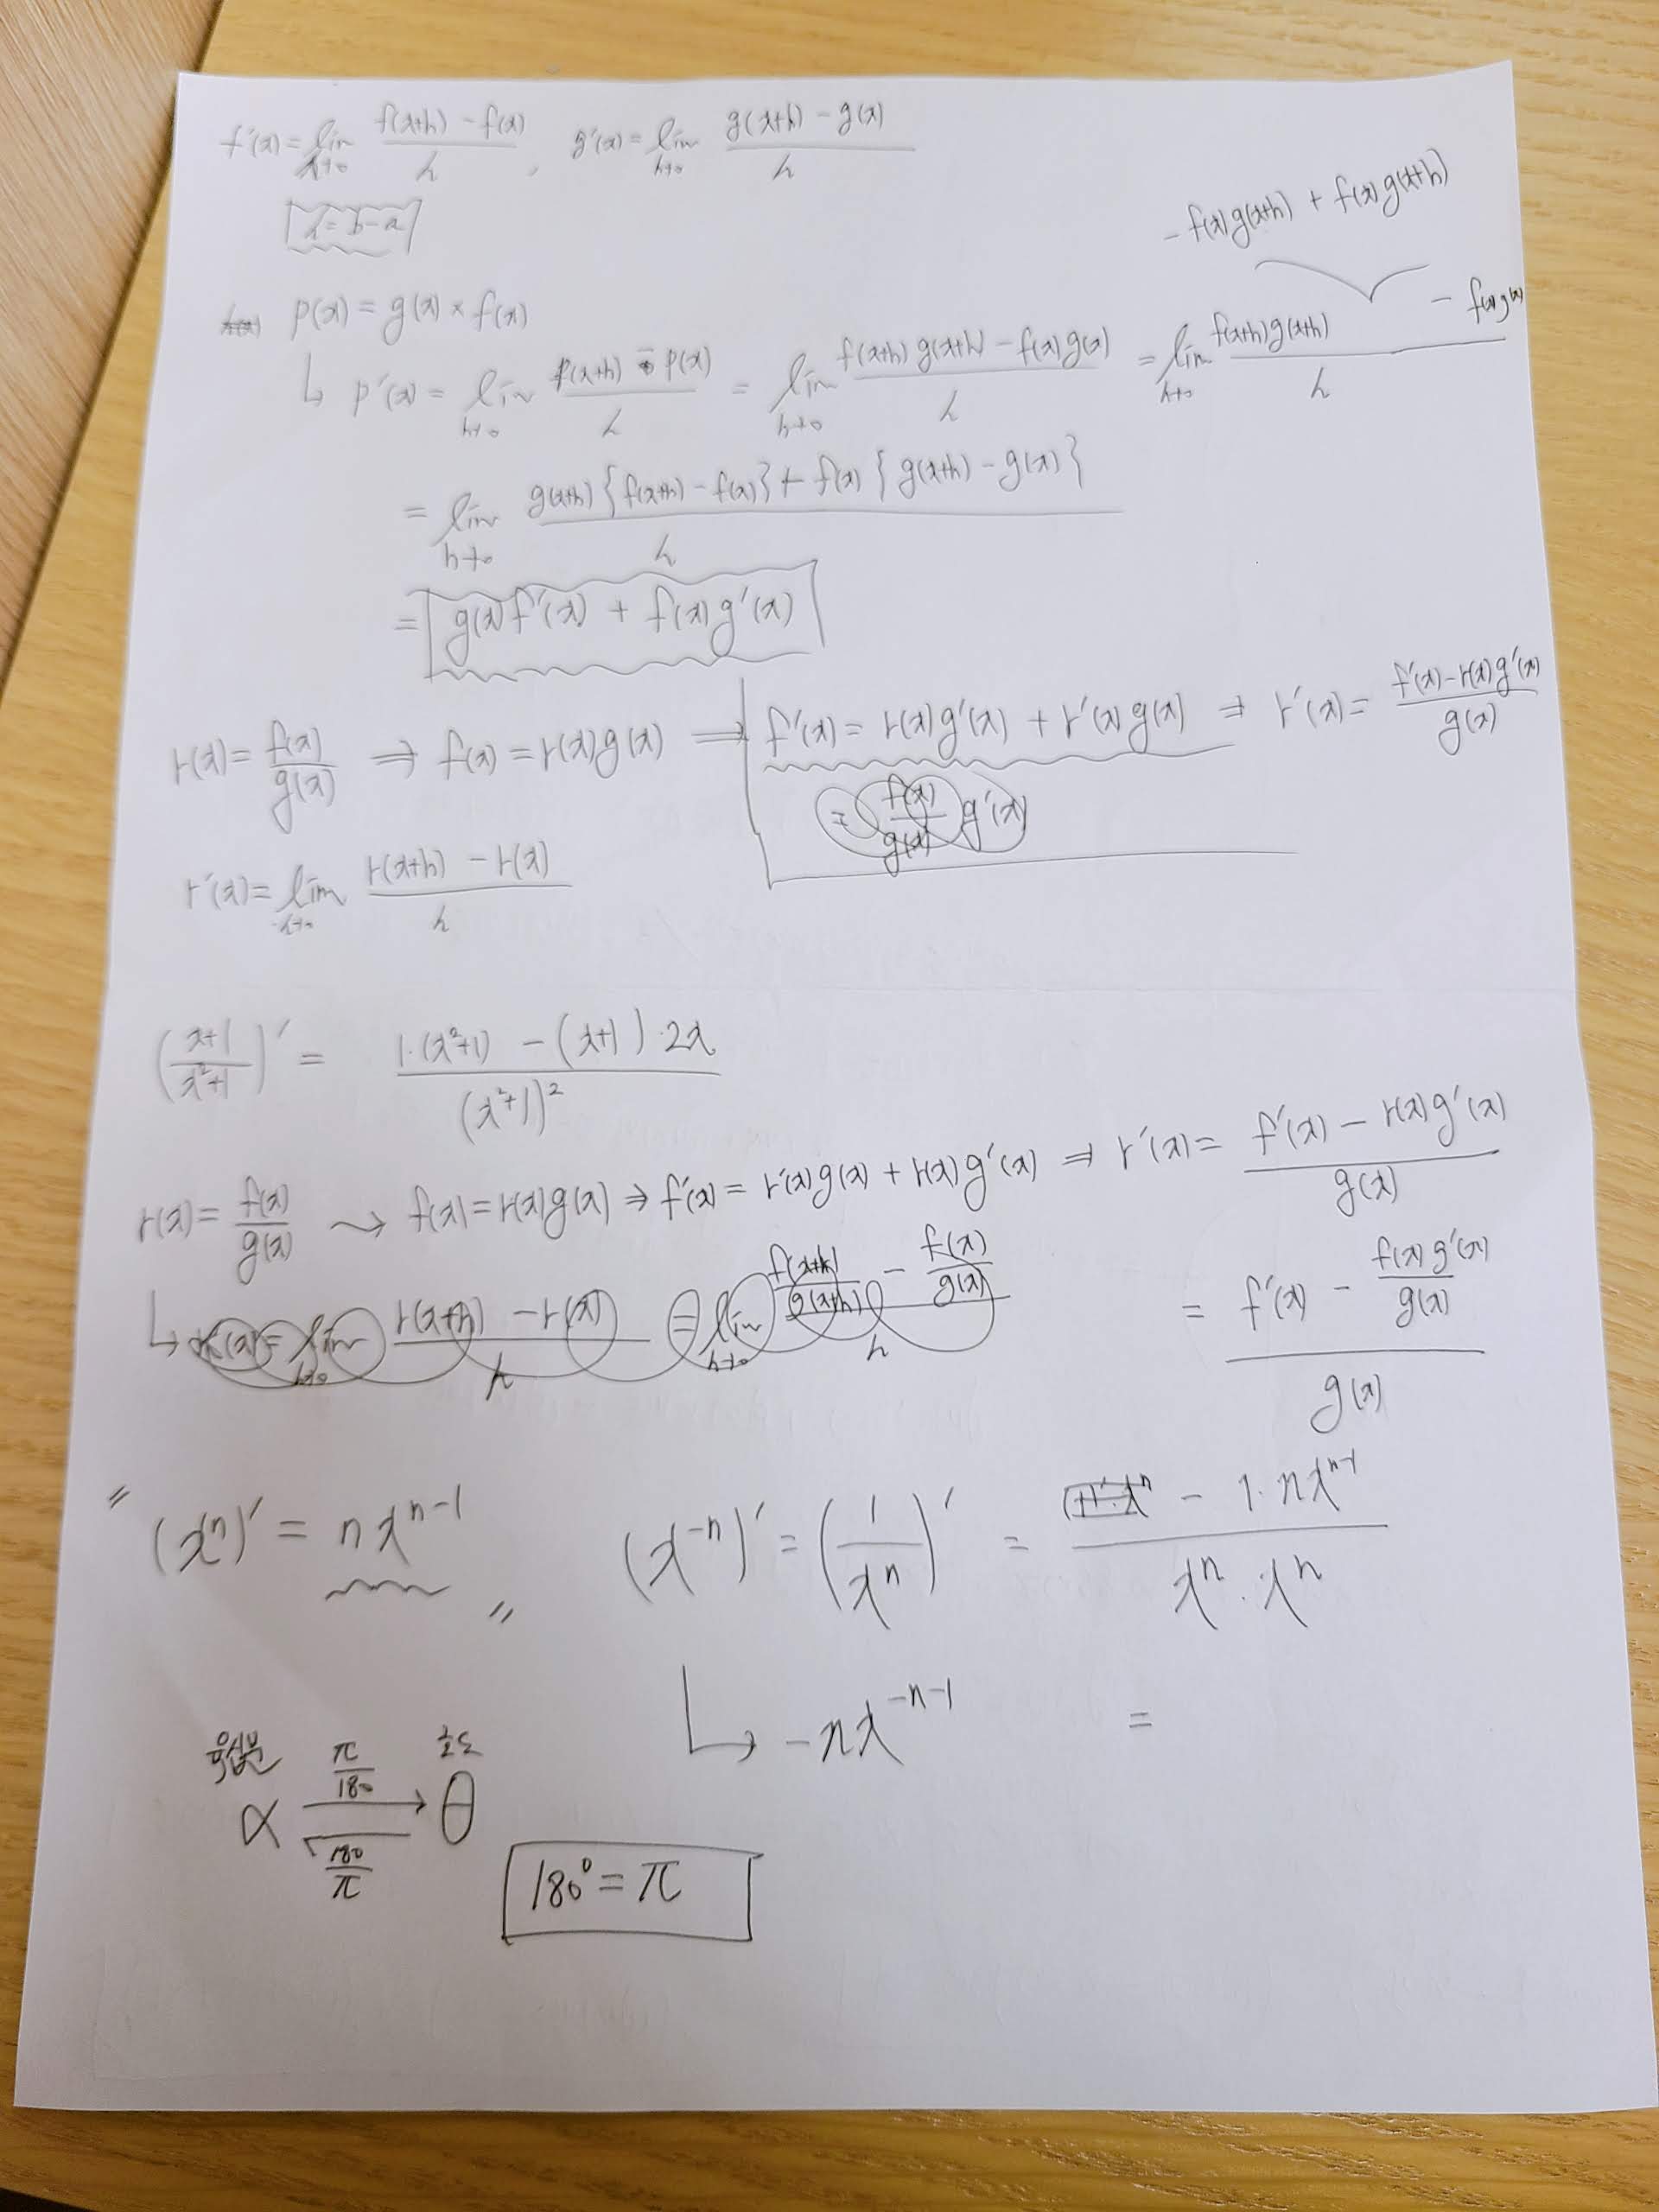 f'(x) = lim h→0 f(x+h) - f(x) / h , g'(x) = lim h→0 g(x+h) - g(x) / h
h = b-a
- f(x)g(x+h) + f(x)g(x+h)
p(x) = g(x) × f(x)
↳ p'(x) = lim h→0 p(x+h) - p(x) / h = lim h→0 f(x+h)g(x+h) - f(x)g(x) / h = lim h→0 f(x+h)g(x+h) - f(x)g(x) / h
= lim h→0 g(x+h){f(x+h) - f(x)} + f(x){g(x+h) - g(x)} / h
= g(x)f'(x) + f(x)g'(x)
r(x) = f(x)/g(x) ⇒ f(x) = r(x)g(x) ⇒ f'(x) = r(x)g'(x) + r'(x)g(x) ⇒ r'(x) = f'(x) - r(x)g'(x) / g(x)
= f(x)/g(x) g'(x)
r'(x) = lim h→0 r(x+h) - r(x) / h
(x+1 / x²+1)' = 1·(x²+1) - (x+1)·2x / (x²+1)²
r(x) = f(x)/g(x) ⇝ f(x) = r(x)g(x) ⇒ f'(x) = r'(x)g(x) + r(x)g'(x) ⇒ r'(x) = f'(x) - r(x)g'(x) / g(x)
↳ r'(x) = lim h→0 r(x+h) - r(x) / h = lim h→0 f(x+h)/g(x+h) - f(x)/g(x) / h
= f'(x) - f(x)g'(x)/g(x) / g(x)
" (xⁿ)' = nxⁿ⁻¹ " (x⁻ⁿ)' = (1/xⁿ)' = (1)'·xⁿ - 1·nxⁿ⁻¹ / xⁿ·xⁿ
↳ -nx⁻ⁿ⁻¹ =
육십분 π/180 호도
α → θ
180/π
180° = π